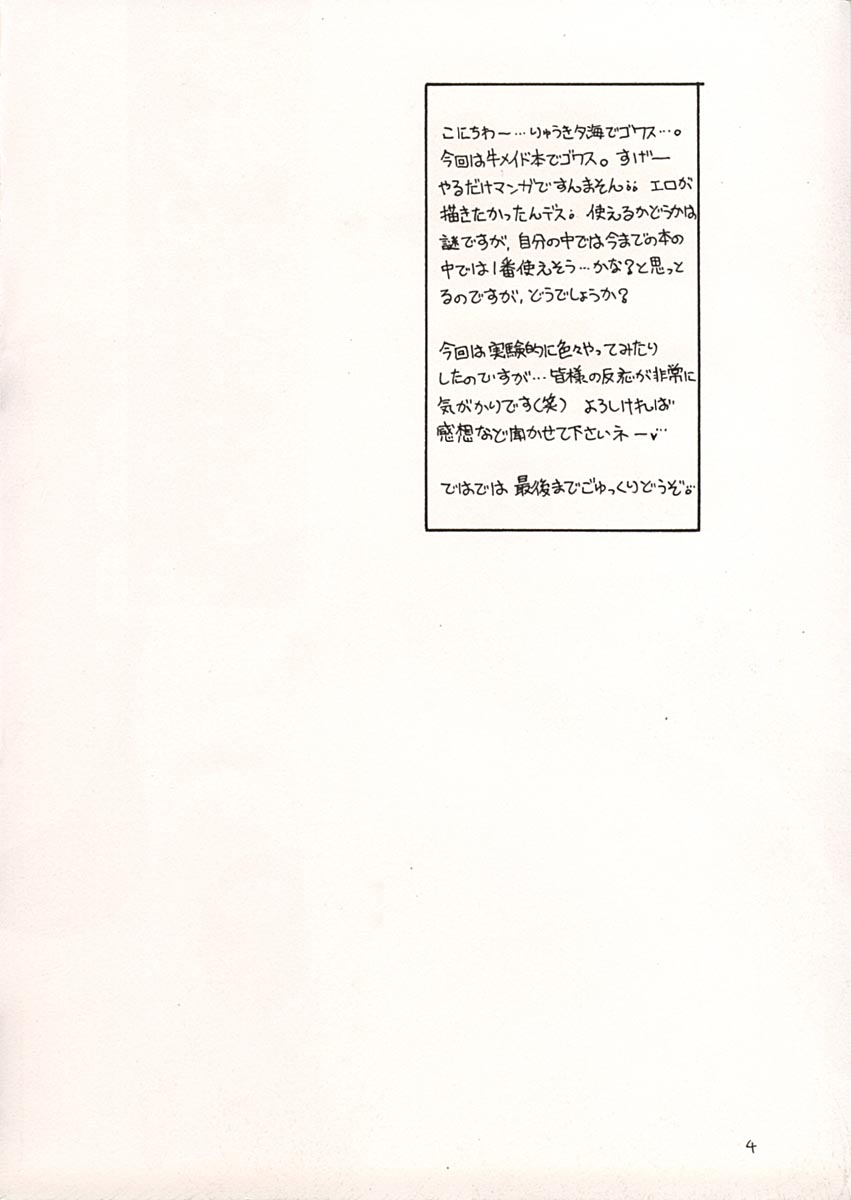 こにちわー…りゅうき夕海でゴワス…。
今回は牛メイド本でゴワス。すげー
やるだけマンガですんまそん。。エロが
描きたかったんデス。使えるかどうかは
謎ですが,自分の中では今までの本の
中では1番使えそう…かな?と思っと
るのですが,どうでしょうか?
今回は実験的に色々やってみたり
したのですが…皆様の反応が非常に
気がかりです(笑) よろしければ
感想など聞かせて下さいネー♥…
ではでは 最後までごゆっくりどうぞ。…
4